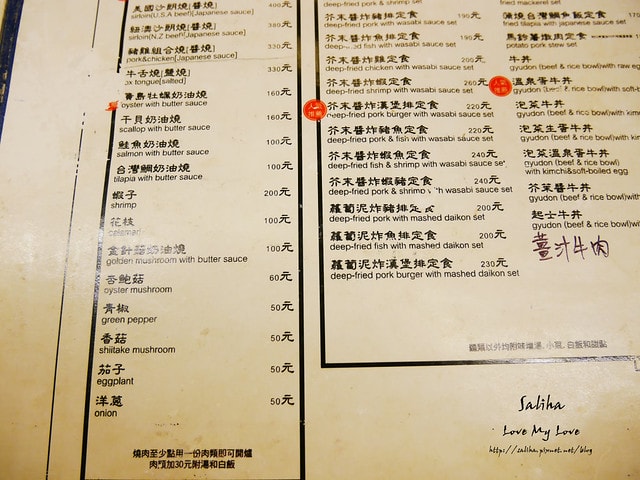 美國沙朗燒[醬燒] 400元
sirloin(U.S.A beef)[Japanese sauce]
紐澳沙朗燒[醬燒] 380元
sirloin(N.Z beef)[Japanese sauce]
豬雞組合燒[醬燒] 330元
pork&chicken[Japanese sauce]
牛舌燒[鹽燒] 330元
ox tongue[salted]
廣島牡蠣奶油燒 160元
oyster with butter sauce
干貝奶油燒 160元
scallop with butter sauce
鮭魚奶油燒 160元
salmon with butter sauce
台灣鯛奶油燒 160元
tilapia with butter sauce
蝦子 200元
shrimp
花枝 100元
金針菇奶油燒 100元
golden mushroom with butter sauce
杏鮑菇 60元
oyster mushroom
青椒 50元
green pepper
香菇 50元
shiitake mushroom
茄子 50元
eggplant
洋蔥 50元
onion
燒肉至少點用一份肉類即可開爐
肉類加30元附湯和白飯
deep-fried pork & shrimp set
芥末醬炸豬排定食 190元
deep-fried pork with wasabi sauce set
芥末醬炸魚排定食 190元
fish with wasabi sauce set
芥末醬炸雞定食 200元
deep-fried chicken with wasabi sauce set
芥末醬炸蝦定食 260元
deep-fried shrimp with wasabi sauce set
人氣推薦
芥末醬炸漢堡排定食 220元
deep-fried pork burger with wasabi sauce set
芥末醬炸豬魚定食 220元
deep-fried pork & fish with wasabi sauce set
芥末醬炸蝦魚定食 240元
deep-fried fish & shrimp with wasabi sauce set
芥末醬炸蝦豬定食 240元
deep-fried pork & shrimp with wasabi sauce set
蘿蔔泥炸豬排定食 200元
deep-fried pork with mashed daikon set
蘿蔔泥炸魚排定食 200元
deep-fried fish with mashed daikon set
蘿蔔泥炸漢堡排定食 230元
deep-fried pork burger with mashed daikon set
fried mackerel set
燒台灣鯛魚飯定食
fried tilapia with japanese sauce set
馬鈴薯燉肉定食
potato pork stew set
牛丼
gyudon (beef & rice bowl)with raw eg
人氣推薦
溫泉蛋牛丼
gyudon (beef & rice bowl)with soft-b
泡菜牛丼
gyudon (beef & rice bowl)with kim
泡菜生蛋牛丼
gyudon (beef & rice bowl)with kim
泡菜溫泉蛋牛丼
gyudon (beef & rice bowl)
with kimchi&soft-boiled egg
芥菜醬牛丼
gyudon (beef & rice bowl)with
起士牛丼
gyudon (beef & rice bowl)with
薑汁牛肉
鍋類以外均附味增湯、小菜、白飯和甜點
Saliha
Love My Love
https://saliha.pixnet.net/blog